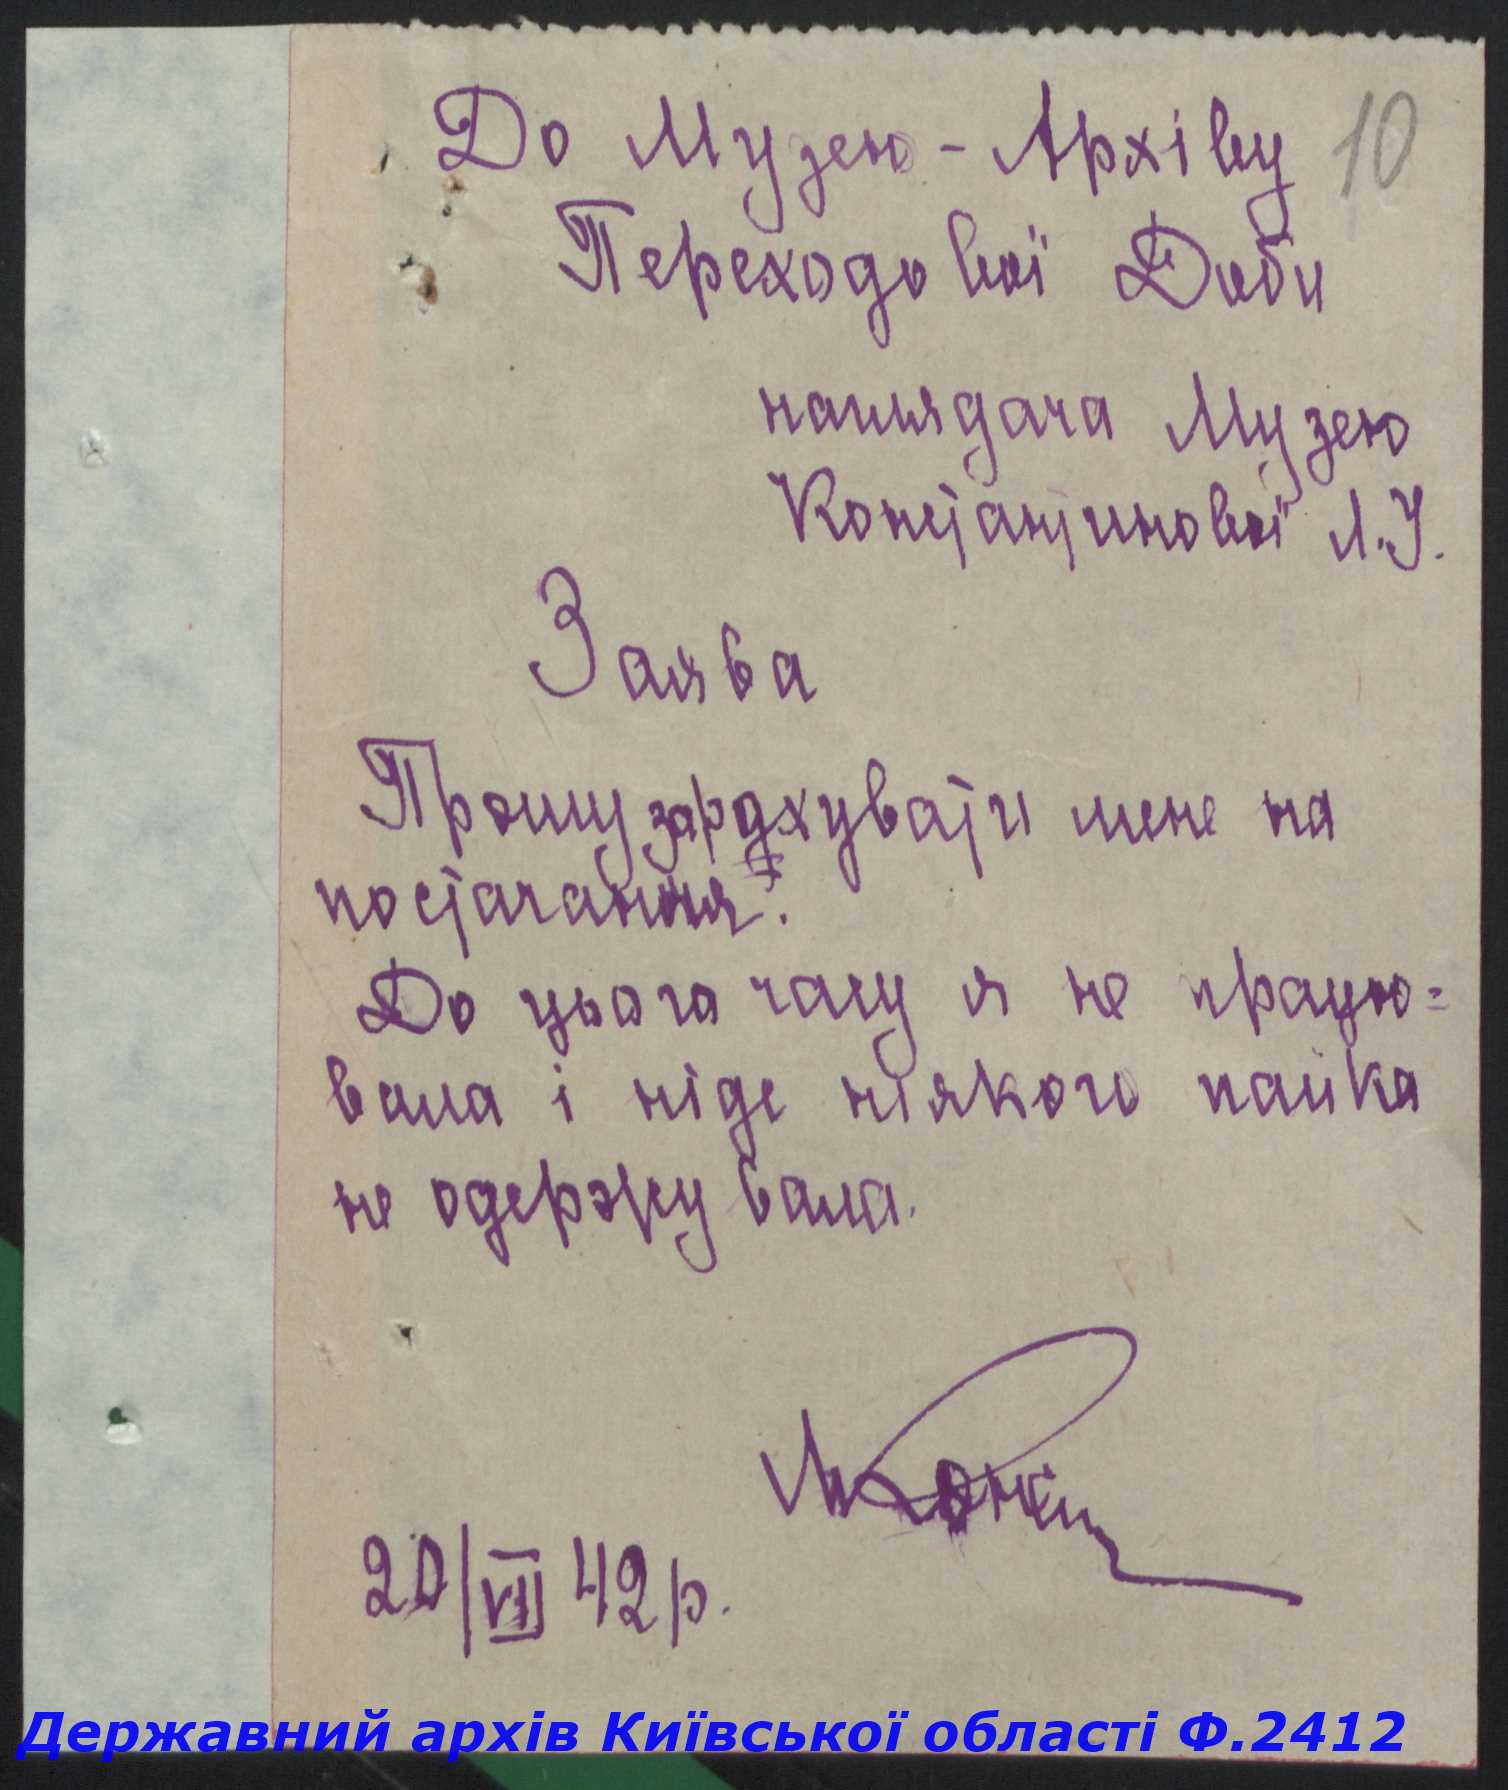 До Музею - Архіву 10
Переходової Доби
наглядача Музею
Константинової Л.У.
Заява
Прошу зарахувати мене на
постачання.
До цього часу я не працю=
вала і ніде ніякого пайка
не одержувала.
20/VII 42 р.
Державний архів Київської області Ф.2412